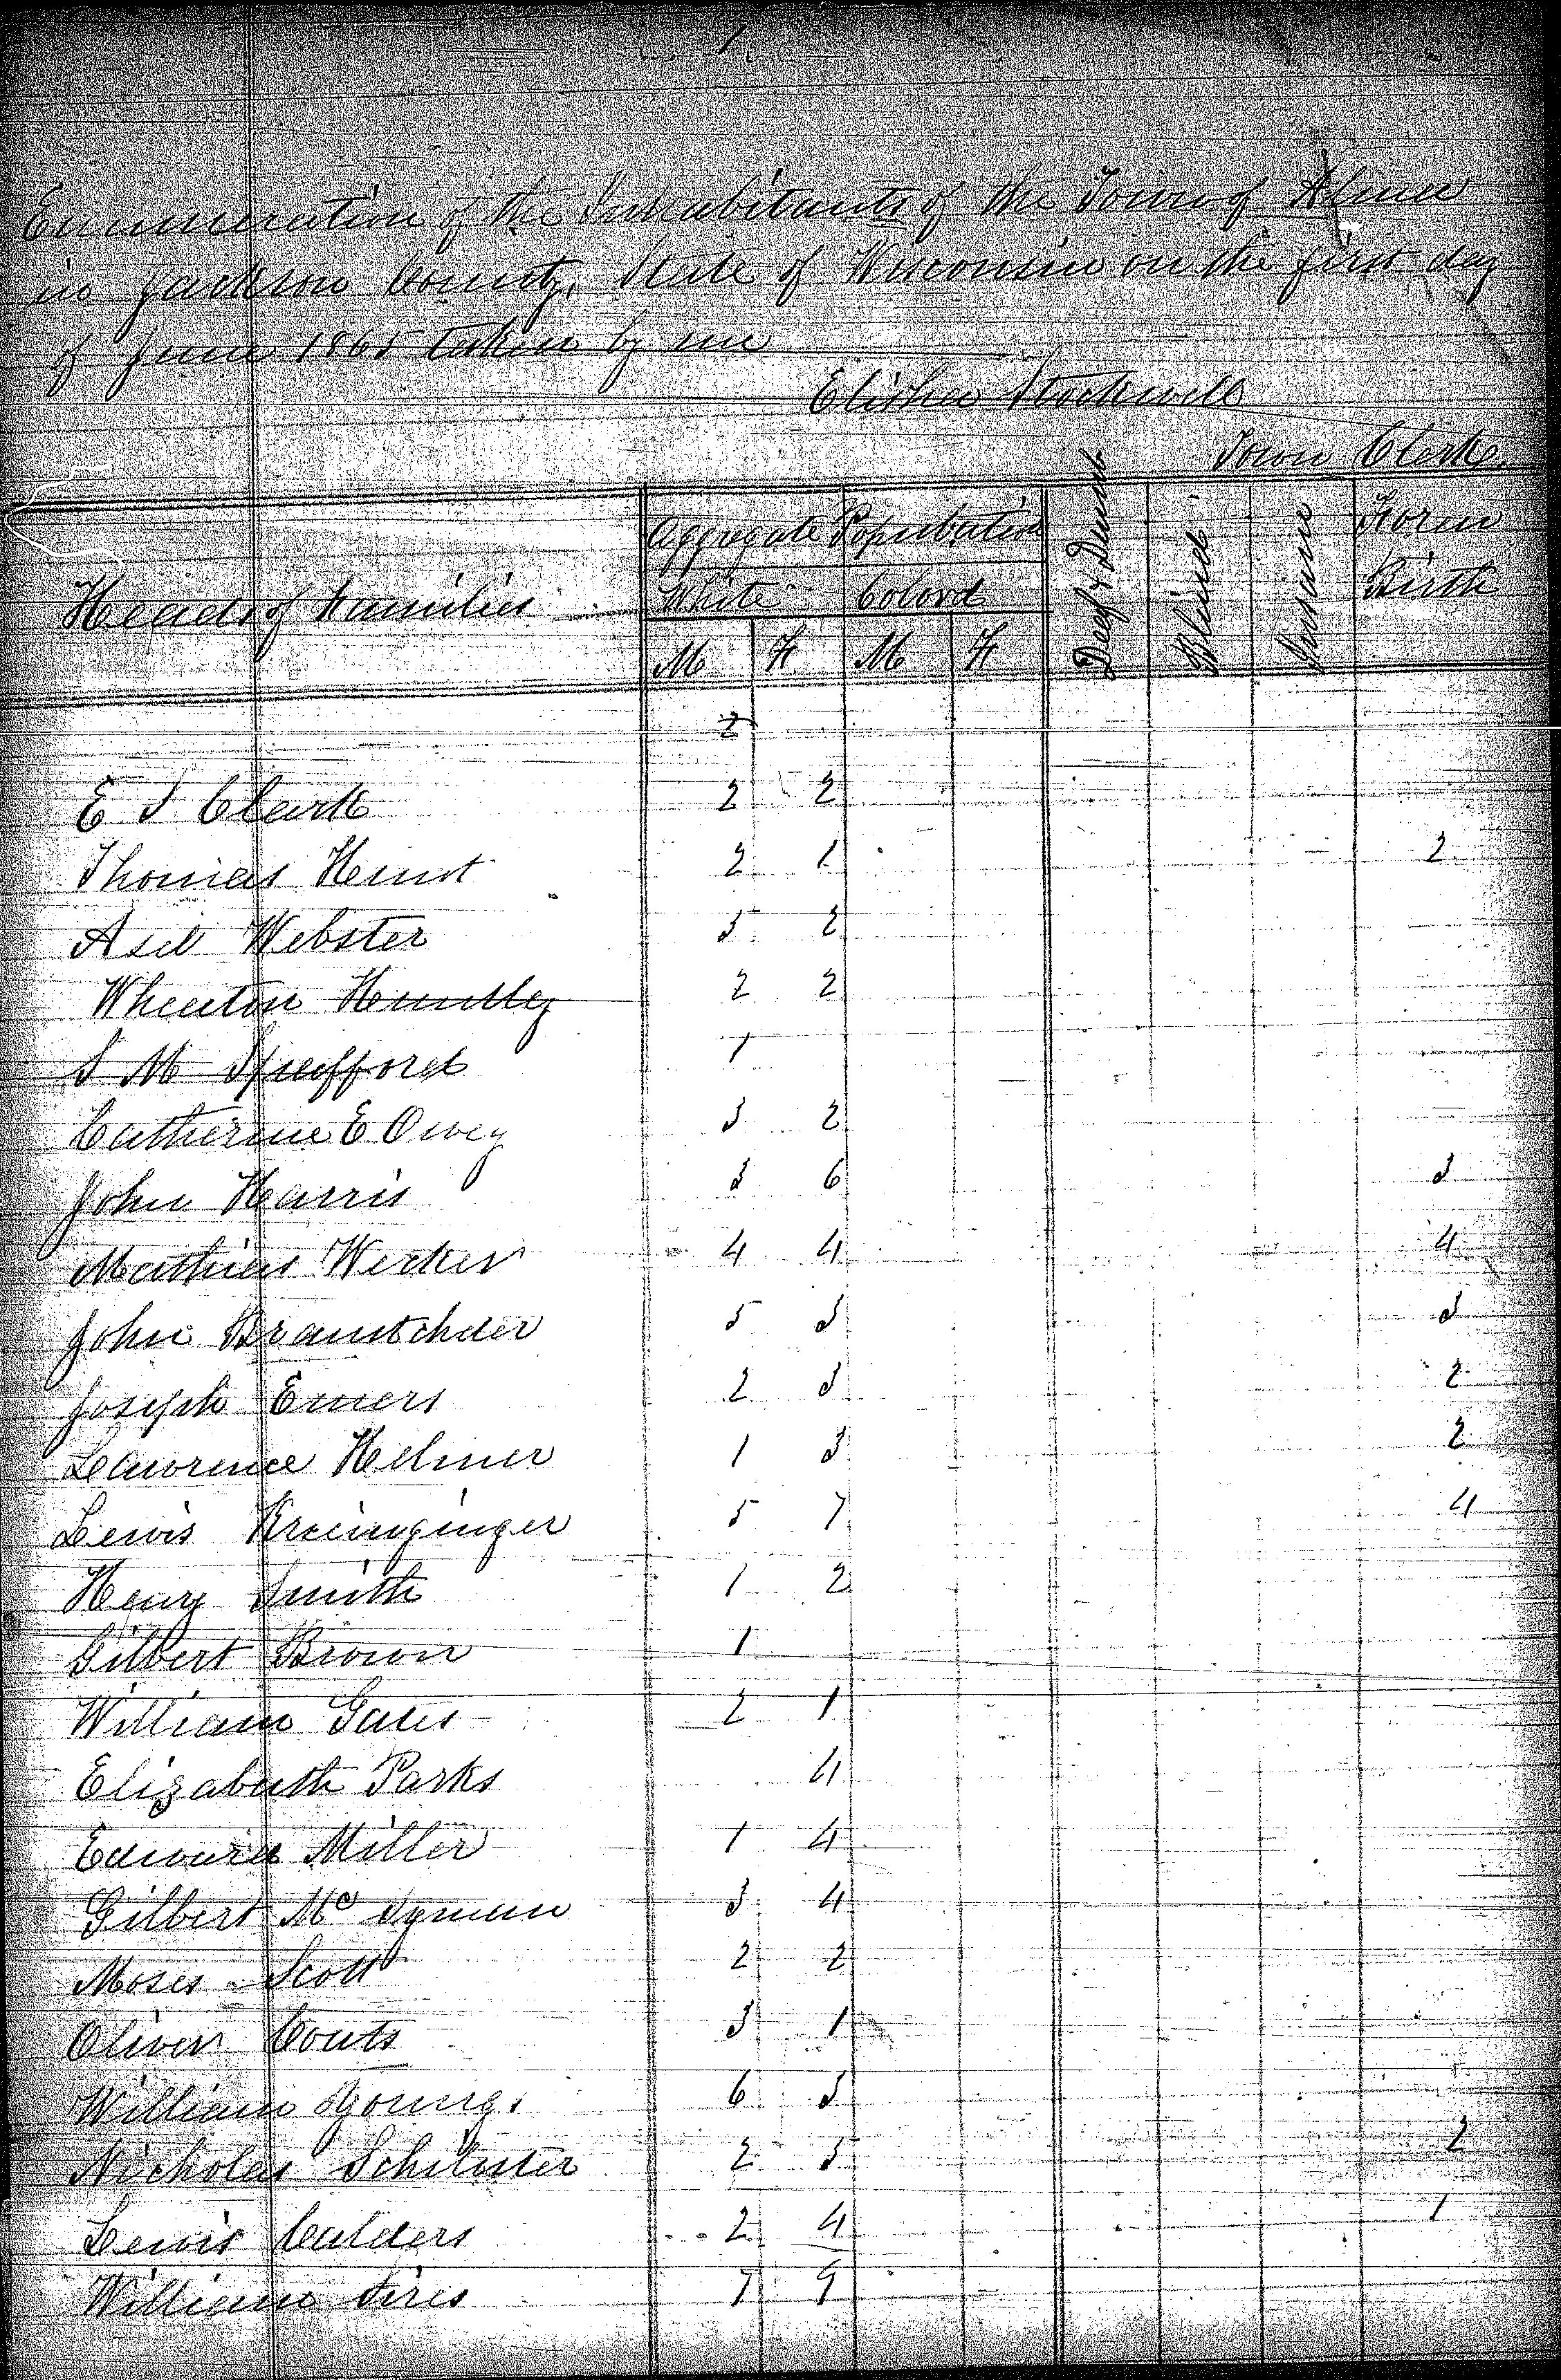 Enumeration of the Inhabitants of the Town of Alma
in Jackson County, State of Wisconsin on the first day
of June 1865 taken by me
Elisha Stockwell
Town Clerk
Heads of Families
Aggregate Population
White Colord
M F M F
Deaf & Dumb
Blind
Insane
Foren
Birth
2
E S Clark 2 2
Thomas Hunt 2 1 2
Asel Webster 5 2
Wheaton Huntley 2 2
S M Spafford 1
Catherine E 3 2
John Harris 3 6 3
Mathias Werker 4 4 4
John 5 3 3
Joseph Emers 2 3 2
Lawrence Helmer 1 3 2
Lewis 5 7 4
Henry Smith 1 2
Gilbert Brown 1
William Gates 2 1
Elizabeth Parks 4
Edward Miller 1 4
Gilbert 3 4
Moses Scott 2 2
Oliver Couts 3 1
William Youngs 6 3
Nicholas 2 2
Lewis Calders 2 4 1
William Sires 7 9